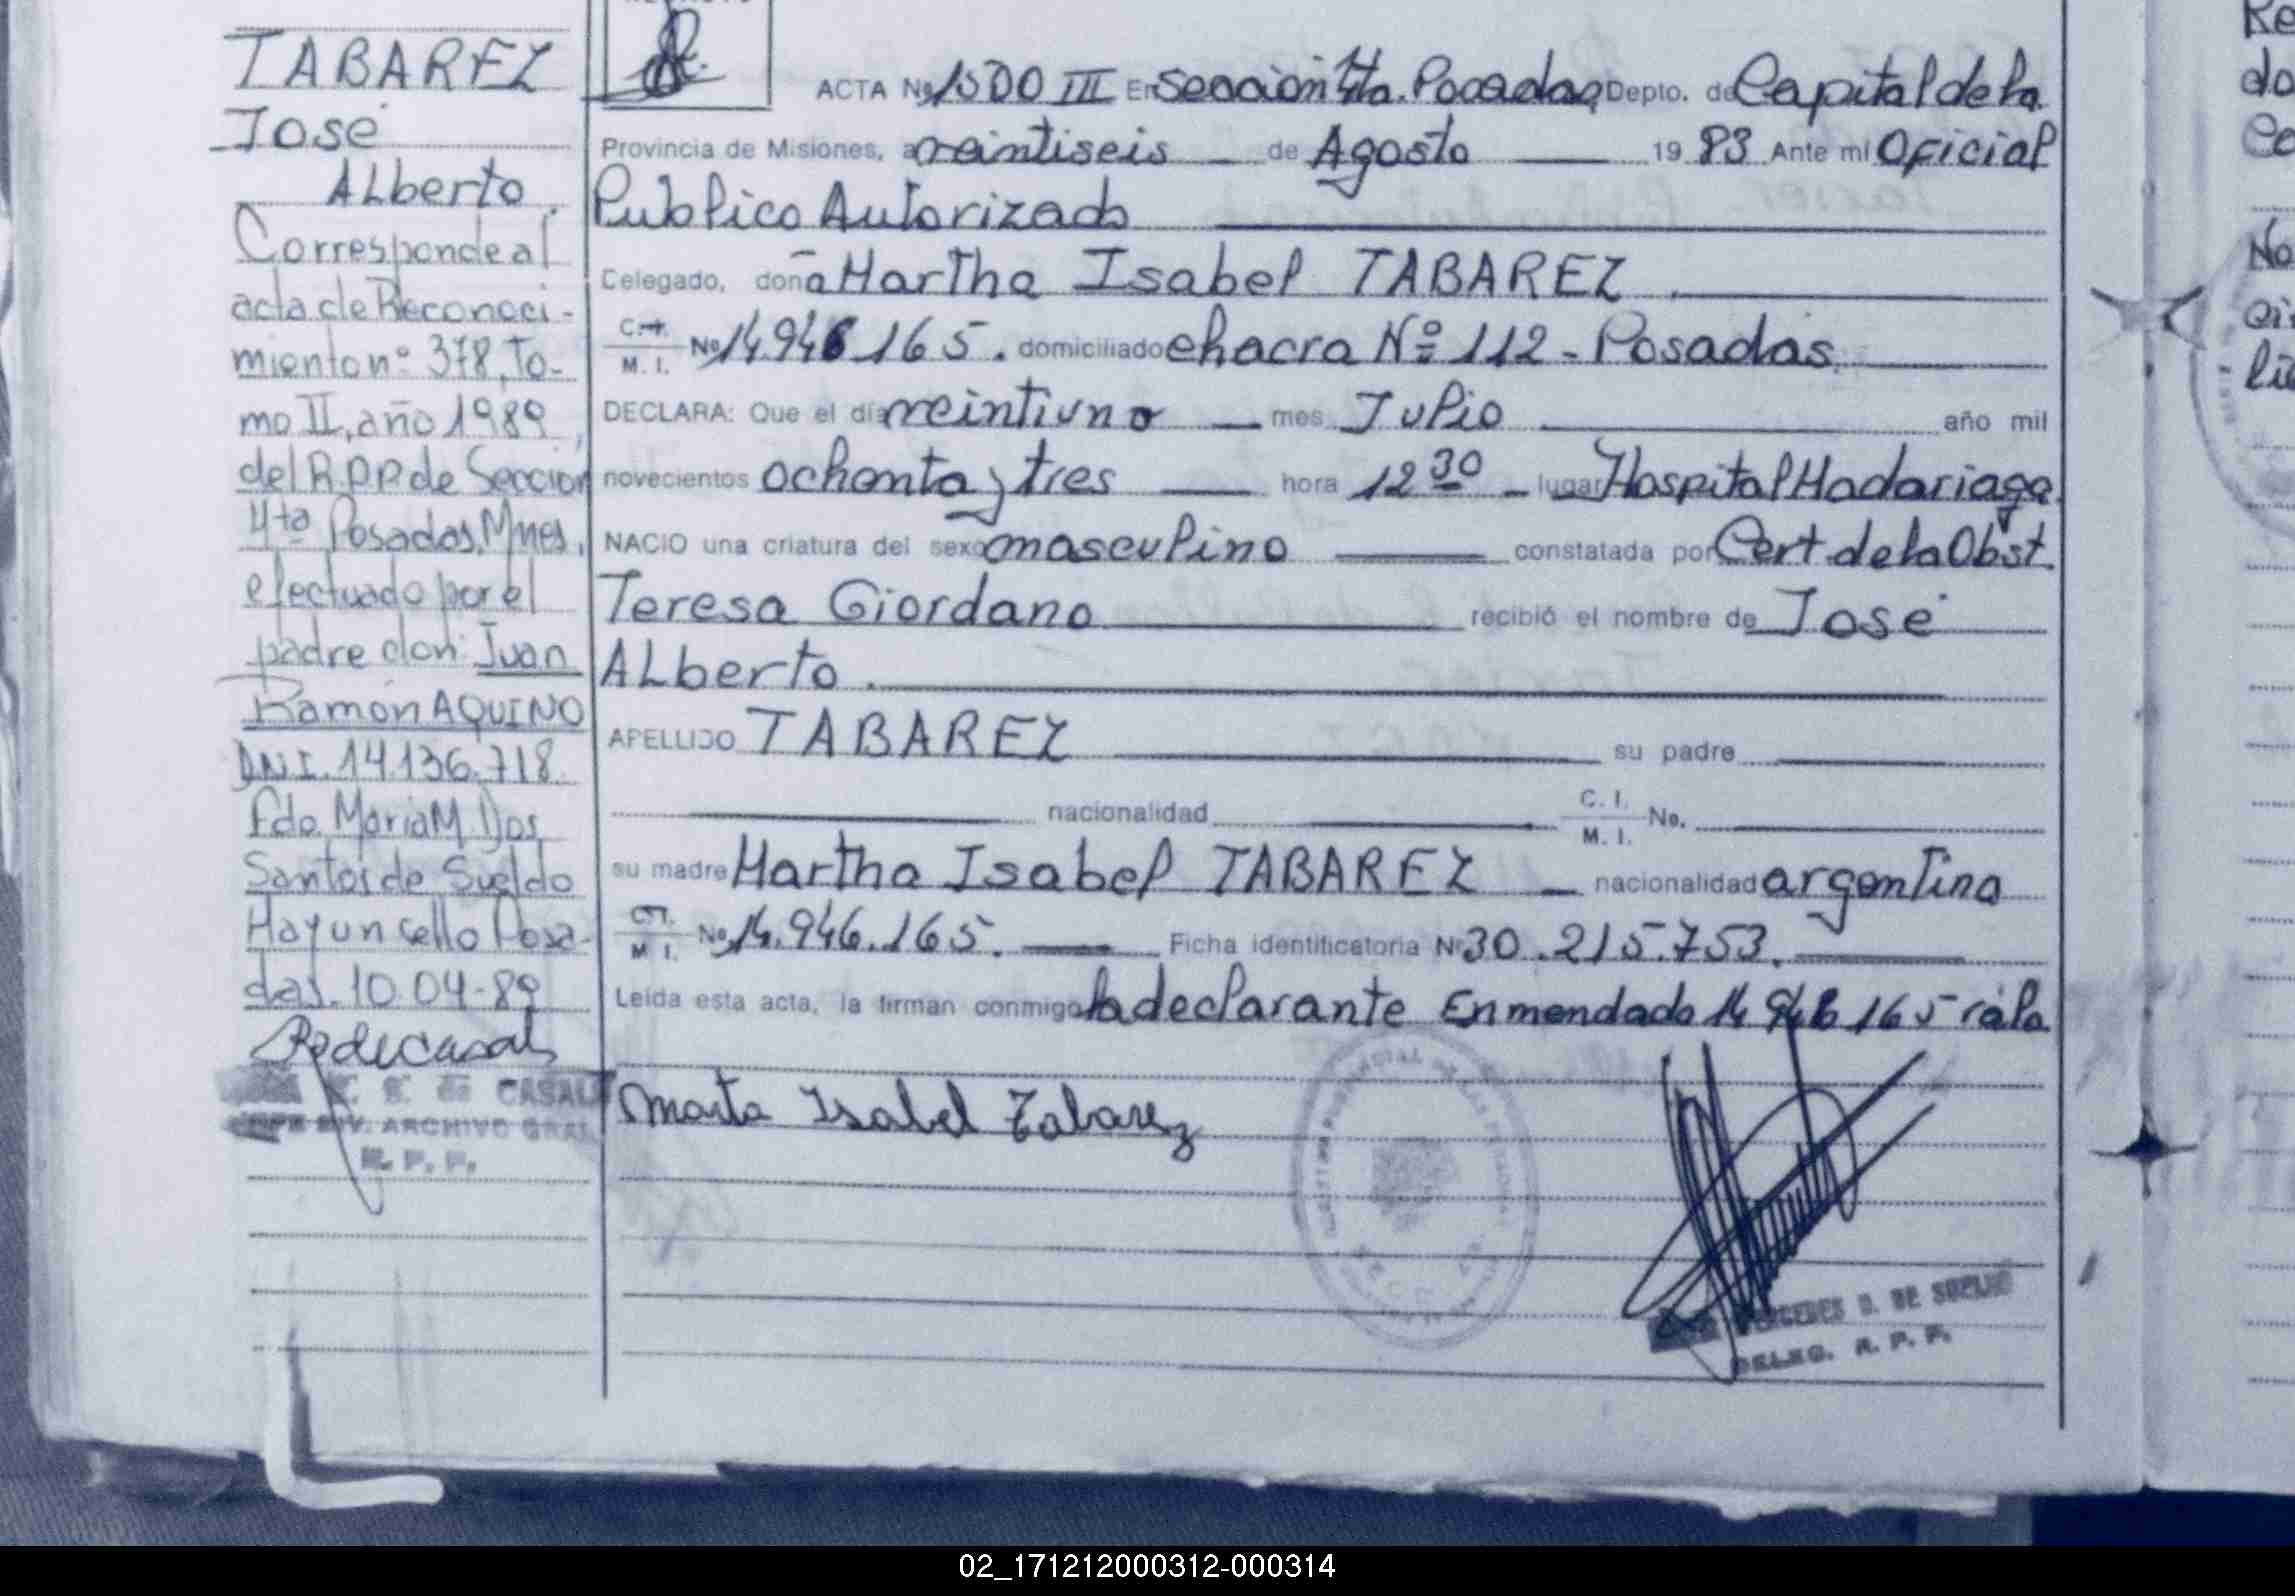 TABAREZ
José
ALberto
Corresponde al
acta de Reconoci-
miento nº 378, To-
mo II, año 1989,
del R.P.P. de Sección
4ta Posadas, Mnes,
efectuado por el
padre don: Juan
Ramón AQUINO
D.N.I. 14.136.718
Fdo. Maria M. Dos
Santos de Sueldo
Hay un sello Posa-
das. 10-04-89
DE CASALI
DIV. ARCHIVO GRAL
R. P. P.
ACTA Nº 1500 III En Sección 4ta. Posadas Depto. de Capital de la
Provincia de Misiones, a veintiseis de Agosto 19 83 Ante mi Oficial
Publico Autorizado
Celegado, doña Martha Isabel TABAREZ
C.I. M. I. Nº 14.946.165. domiciliado chacra Nº 112 - Posadas
DECLARA: Que el día veintiuno mes Julio año mil
novecientos ochenta y tres hora 12 30 lugar Hospital Madariaga
NACIO una criatura del sexo masculino constatada por Cert. de la Obst.
Teresa Giordano recibió el nombre de José
ALberto.
APELLIDO TABAREZ su padre
nacionalidad C. I. M. I. No.
su madre Martha Isabel TABAREZ nacionalidad argentina
C.I. M. I. Nº 14.946.165. Ficha identificatoria Nº 30.215.753.
Leída esta acta, la firman conmigo la declarante Enmendado 14 946 165 vale
Marta Isabel Tabarez
MERCEDES D. DE SUELDO
DELEG. R. P. P.
02_171212000312-000314